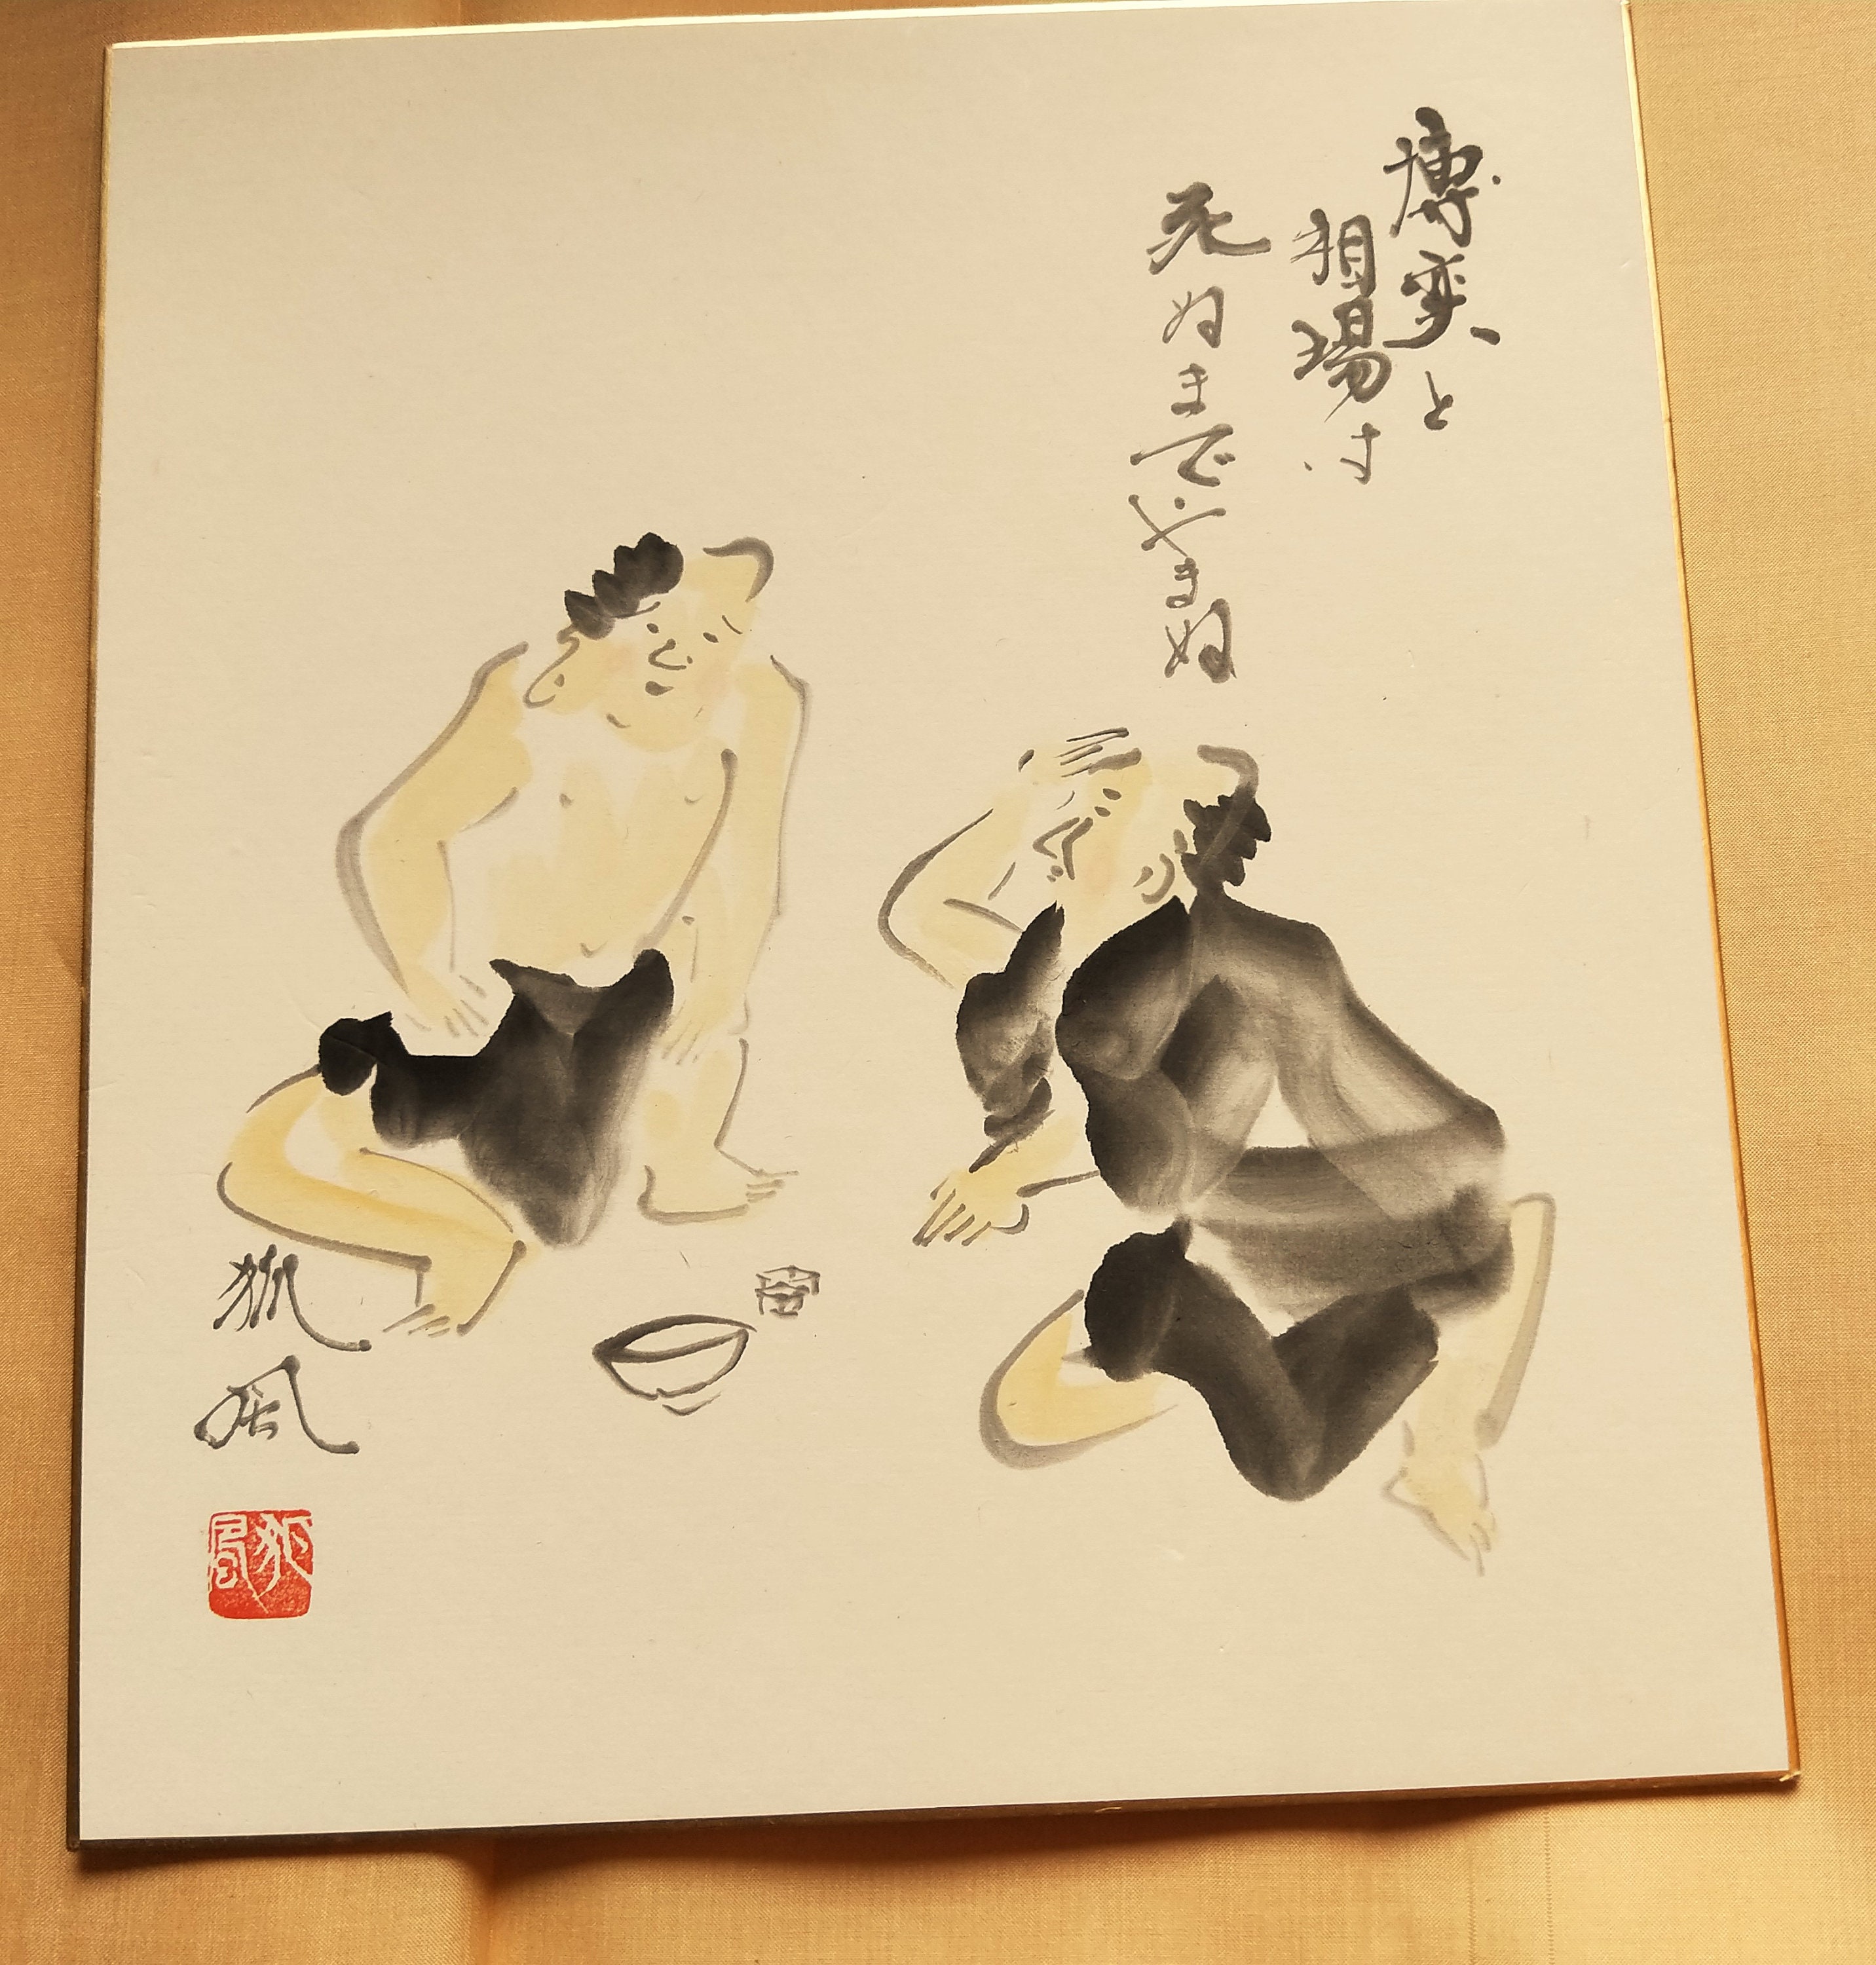 博奕と
相場は
死ぬまでやまぬ
狐風
狐風